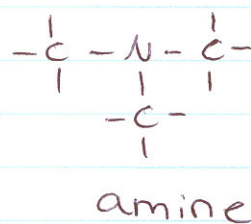 C N C
C
amine